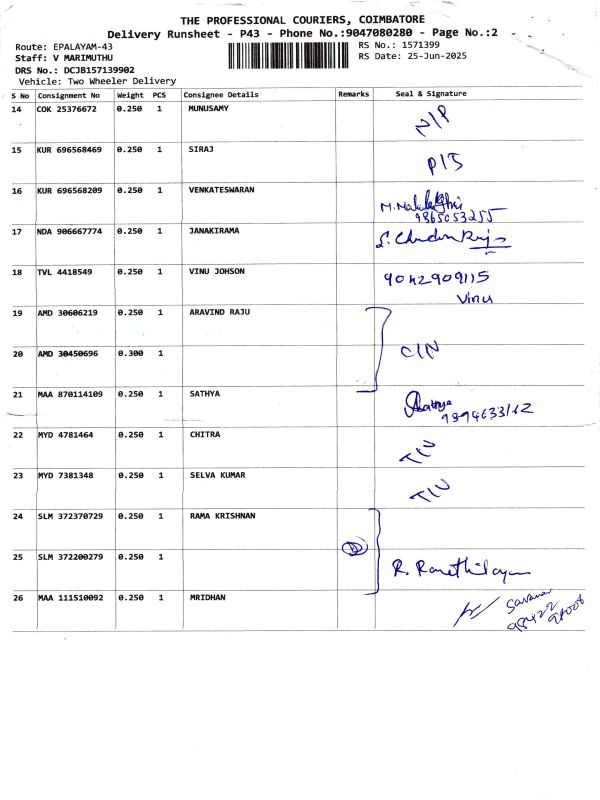 THE PROFESSIONAL COURIERS, COIMBATORE
Delivery Runsheet - P43 - Phone No.:9047080280 - Page No.:2
Route: EPALAYAM-43
RS No.: 1571399
Staff: V MARIMUTHU
RS Date: 25-Jun-2025
DRS No.: DCJB157139902
Vehicle: Two Wheeler Delivery
S No Consignment No Weight PCS Consignee Details Remarks Seal & Signature
14 COK 25376672 0.250 1 MUNUSAMY N/P
15 KUR 696568469 0.250 1 SIRAJ
16 KUR 696568209 0.250 1 VENKATESWARAN
9865053255
17 NDA 906667774 0.250 1 JANAKIRAMA
18 TVL 4418549 0.250 1 VINU JOHSON 9042909115
Vinu
19 AMD 30606219 0.250 1 ARAVIND RAJU
20 AMD 30450696 0.300 1 C/N
21 MAA 870114109 0.250 1 SATHYA Sathya
22 MYD 4781464 0.250 1 CHITRA
23 MYD 7381348 0.250 1 SELVA KUMAR
24 SLM 372370729 0.250 1 RAMA KRISHNAN
25 SLM 372200279 0.250 1
26 MAA 111510092 0.250 1 MRIDHAN